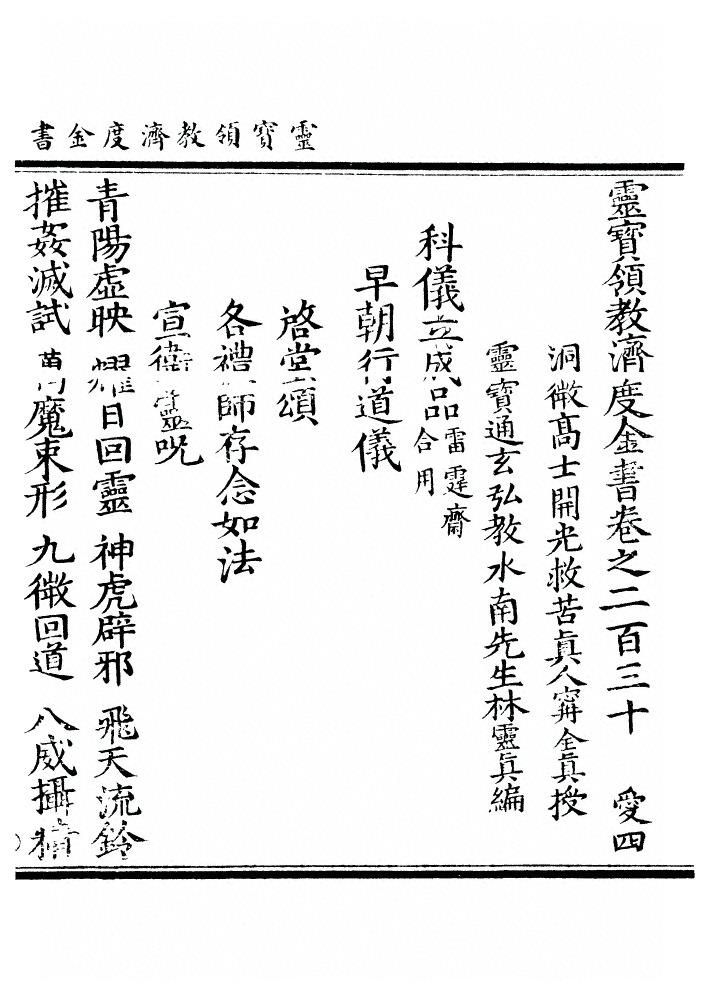 靈寶領教濟度金書
靈寶領教濟度金書卷之二百三十　愛四
洞微高士開光救苦眞人甯全眞授
靈寶通玄弘教水南先生林靈眞編
科儀立成品雷霆齋合用
早朝行道儀
啓堂頌
各禮師存念如法
宣衛靈呪
青陽虛映　耀日回靈　神虎辟邪　飛天流鈴
摧姦滅試　萬魔束形　九微回道　八威攝精